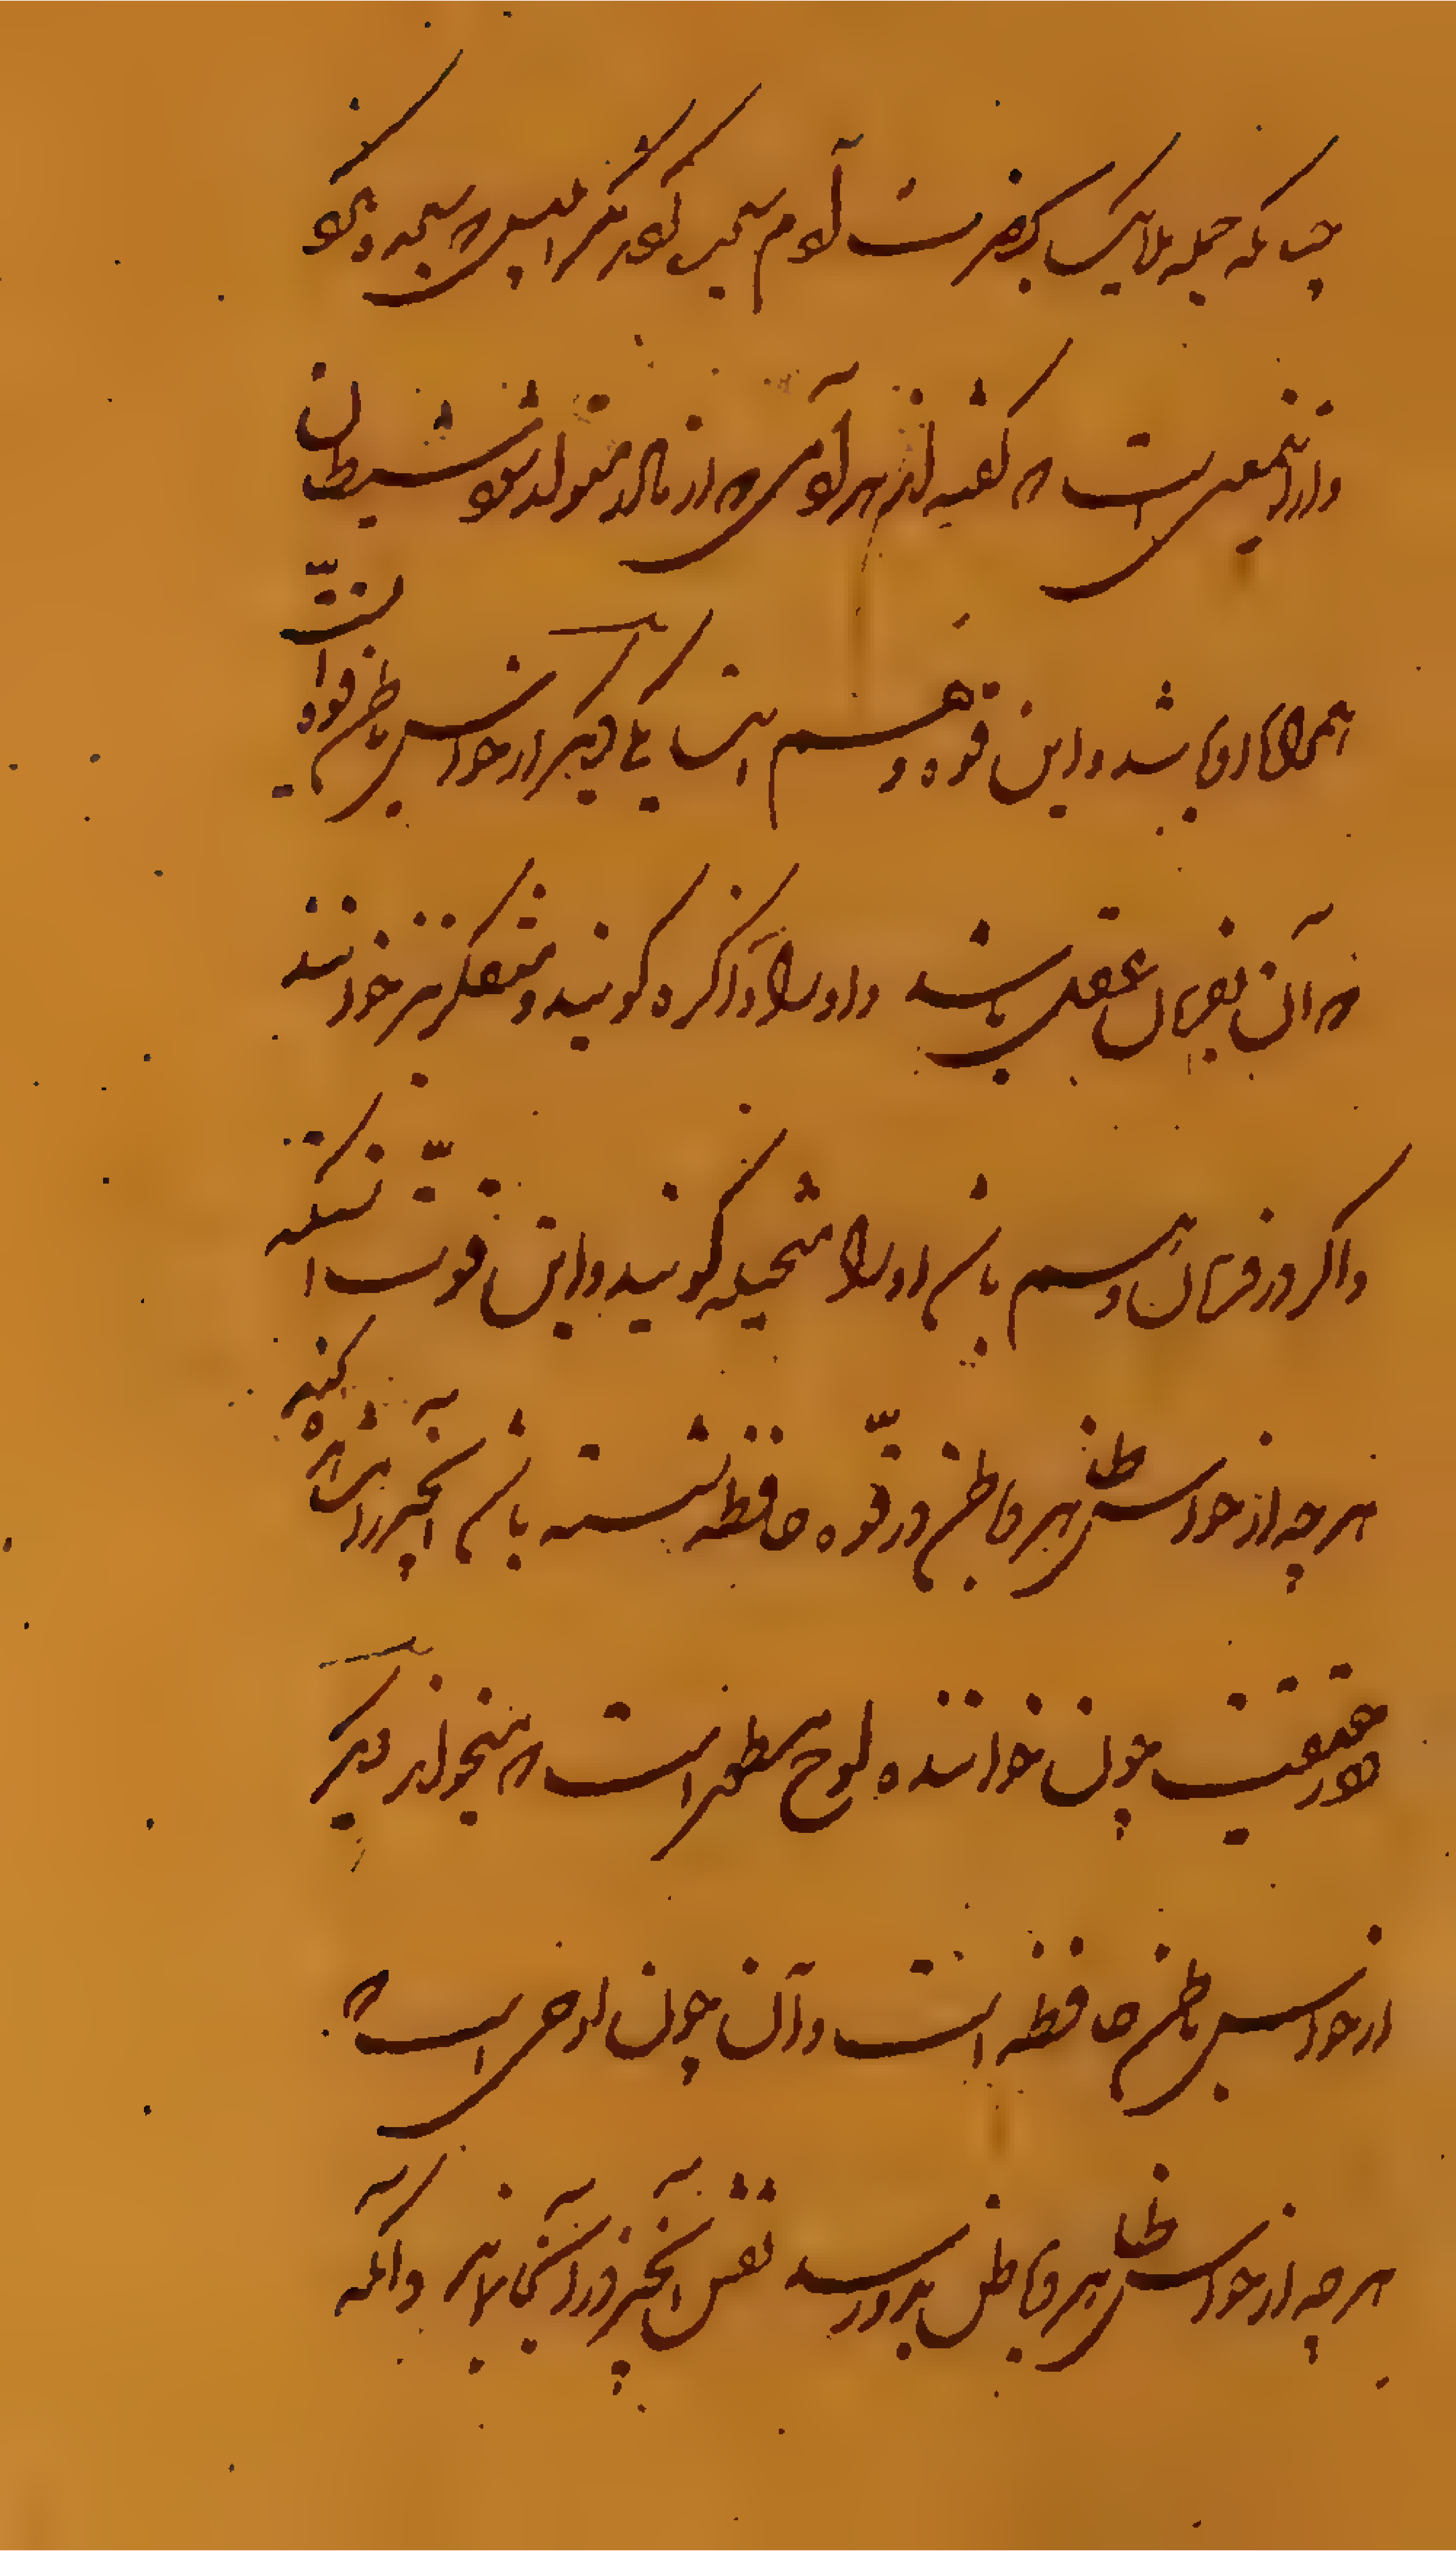 چنانکه جمله ملایک بحضرت آدم سجده کردند مگر ابلیس که سجده نکرد
و از اینمعنی است که گفته‌اند هر آدمی که از مادر متولد شود شیطانی
همراه او باشد و این قوه وهم است یکی دیگر از حواس باطن قوه است
که آن بفرمان عقل باشد و او را ذاکره گویند و متفکر نیز خوانند
و اگر در فرمان وهم باشد او را متخیله گویند و این قوت است که
هر چه از حواس ظاهر و باطن در قوه حافظه نشسته باشد آنچیز را مشاهده کند
و در حقیقت چون خواننده لوح سطور است که میخواند دیگر
از حواس باطن حافظه است و آن چون لوحی است که
هر چه از حواس ظاهر و باطن بدو رسد نقش آنچیز در آنجا بماند و آنکه